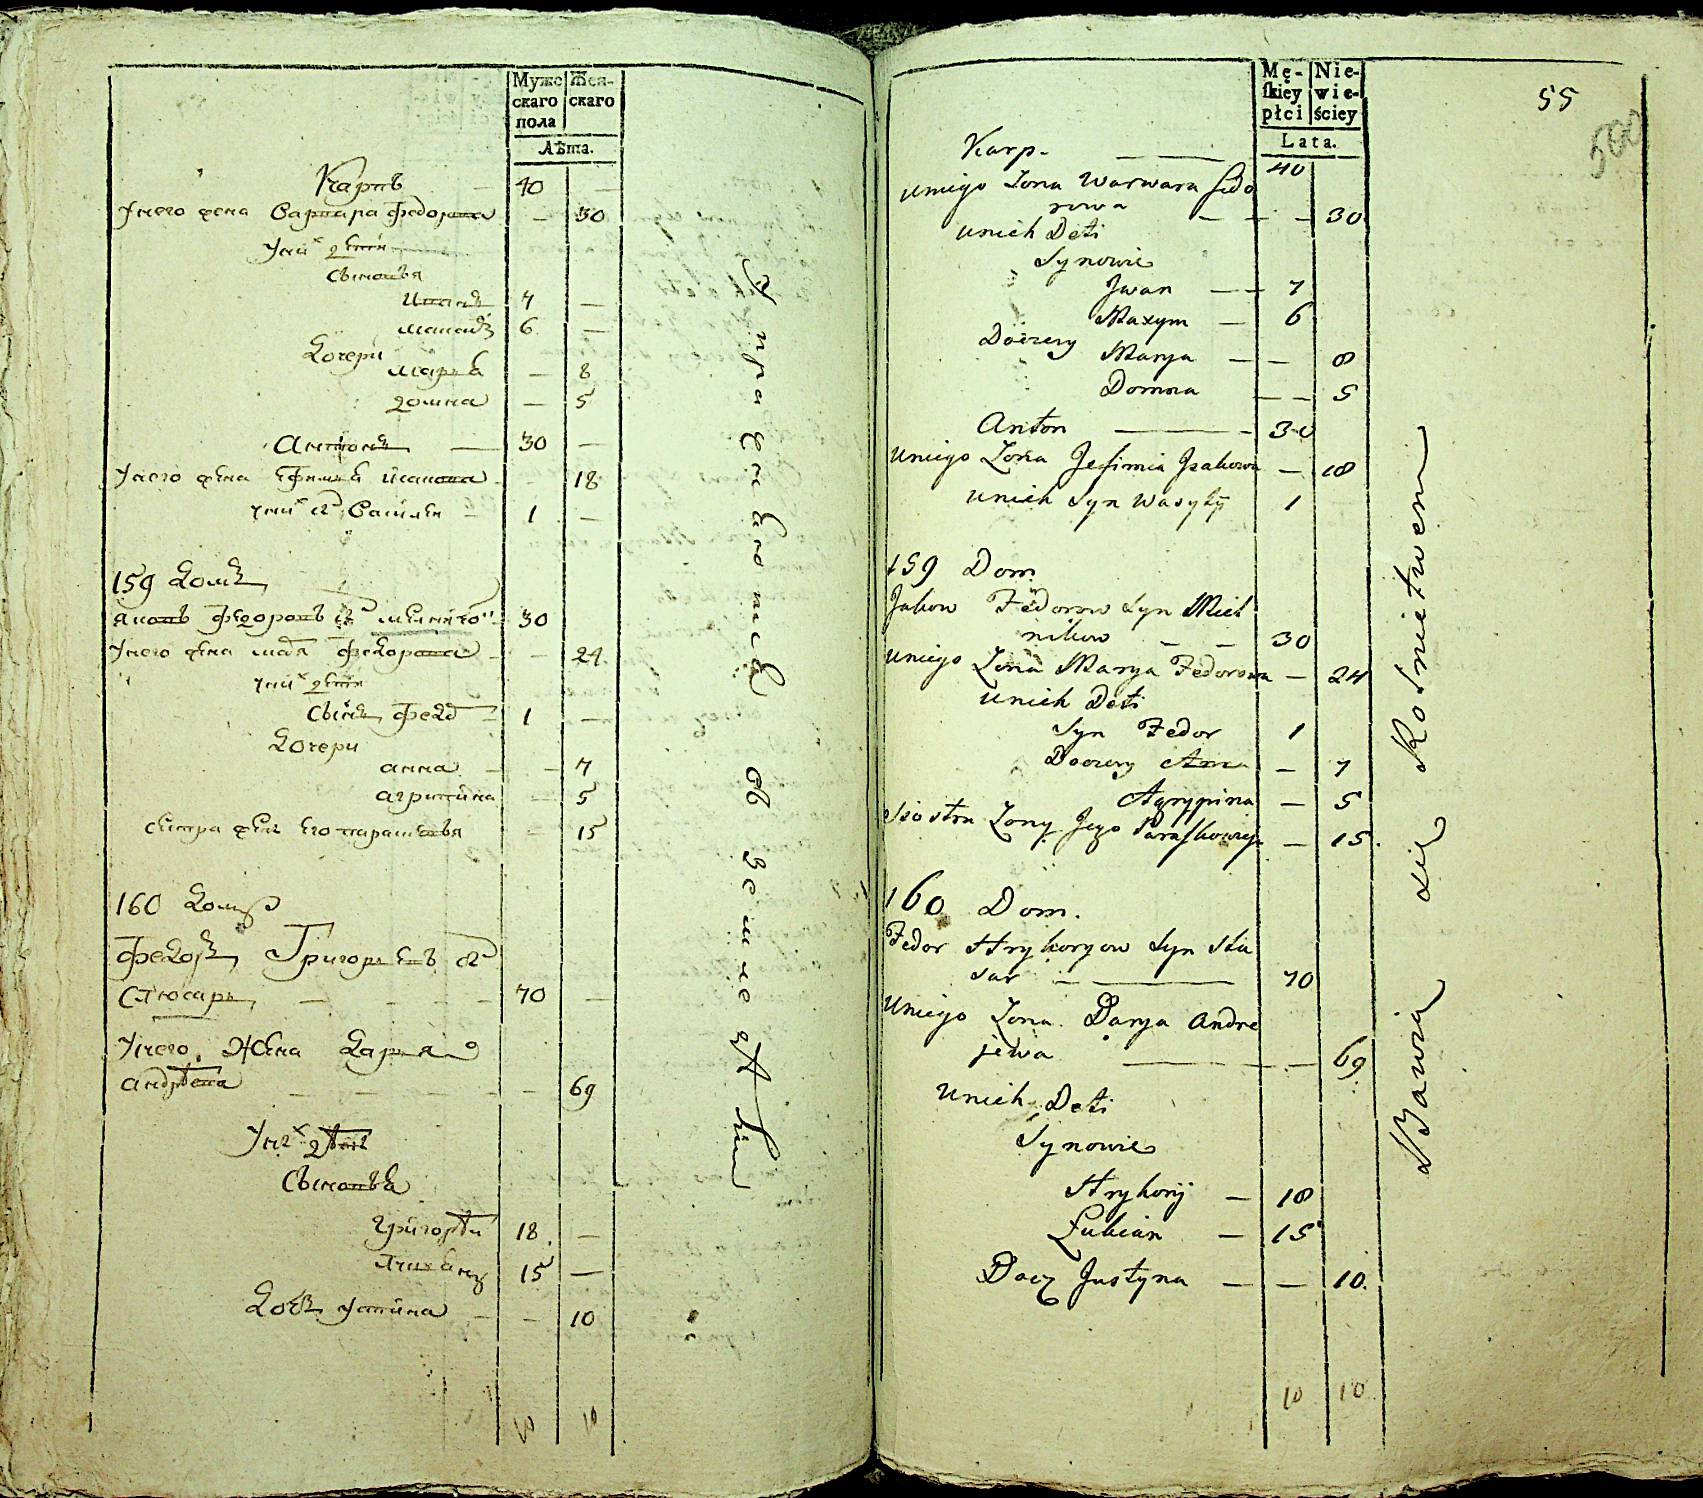 Муже
скаго
пола
Жен-
скаго
Лѣта.
Карпъ 40 —
Унего жена Варвара федорова — 30
Унихъ дети
Сыновья
Иванъ 7 —
максимъ 6 —
Дочери
марья — 8
домна — 5
Антонъ — 30 —
Унего жена Ефимья Исакова — 18
унихъ сынъ Василеи — 1 —
159 Домъ
яковъ федоровъ сынъ мелниковъ 30
Унего жена марья федорова — 24
унихъ дети
Сынъ федоръ — 1 —
Дочери
анна — — 7
агрипина — 5
сестра жены его парасковья — 15
160 Домъ
федоръ Григорьевъ сынъ
Слюсарь — — — — 70 —
Унего Жена Дарья
андрѣева — — — — — 69
Унихъ дѣти
Сыновья
григорѣи 18 —
15 —
Дочь устина — — 10
10 10
Упражняютца въ земледѣлии
Mę-
ſkiey
płci
Nie-
wie-
ściey
Lata.
55
500
Karp. — — 40
uniego Zona Warwara Fedo
rowa — — — 30
unich Deti
Synowie
Jwan — — 7
Maxym — 6
Doczery
Marya — — 8
Domna — — 5
Anton — — 30
uniego Zona Jefimia Jsakowa — 18
unich Syn Wasylÿ 1
159 Dom
Jakow Fedorow Syn Miel
nikow — — 30
uniego Zona Marya Fedorowa — 24
unich Deti
Syn Fedor 1
Doczery Anna — 7
Agrypina — 5
Siostra Zony Jego Paraſkowieja — 15.
160 Dom.
Fedor Hryhoryow Syn Slu
sar — — 70
uniego Zona Darya Andre
jewa — — — 69
unich Deti
Synowie
Hryhorij — 18
Łukian — 15
Docz Justyna — — 10.
10 10
Bawią się Rolnictwem